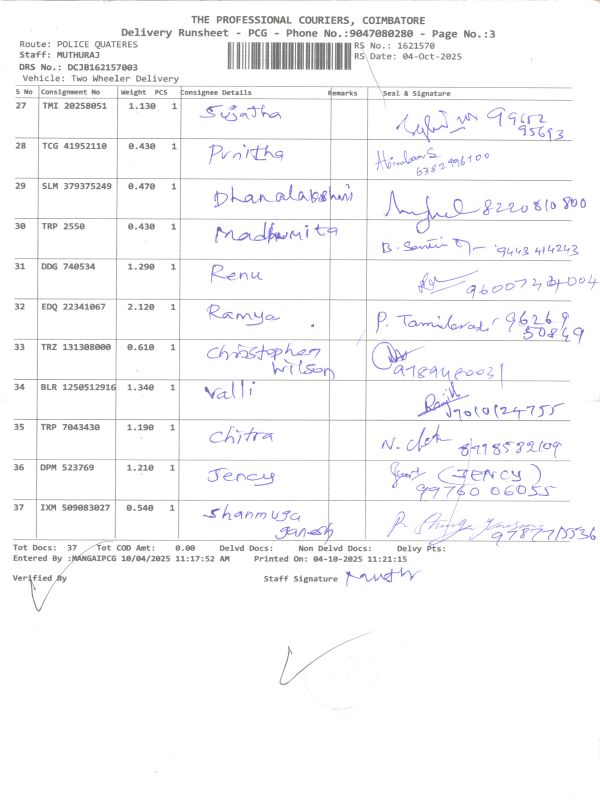 THE PROFESSIONAL COURIERS, COIMBATORE
Delivery Runsheet - PCG - Phone No.:9047080280 - Page No.:3
Route: POLICE QUATERES RS No.: 1621570
Staff: MUTHURAJ RS Date: 04-Oct-2025
DRS No.: DCJB162157003
Vehicle: Two Wheeler Delivery
S No Consignment No Weight PCS Consignee Details Remarks Seal & Signature
27 TMI 20258051 1.130 1 Sujatha 99652
95693
28 TCG 41952110 0.430 1 Punitha
6382996700
29 SLM 379375249 0.470 1 Dhanalakshmi 8220810800
30 TRP 2550 0.430 1 Madhumita B. 9443414243
31 DDG 740534 1.290 1 Renu
32 EDQ 22341067 2.120 1 Ramya P. 96269
50849
33 TRZ 131308000 0.610 1 Christopher
Wilson
34 BLR 1250512916 1.340 1 Valli
7010124755
35 TRP 7043430 1.190 1 Chitra N. 8778582109
36 DPM 523769 1.210 1 Jency (JENCY)
99760 06055
37 IXM 509083027 0.540 1 Shanmuga
ganesh
Tot Docs: 37 Tot COD Amt: 0.00 Delvd Docs: Non Delvd Docs: Delvy Pts:
Entered By :MANGAIPCG 10/04/2025 11:17:52 AM Printed On: 04-10-2025 11:21:15
Verified By Staff Signature